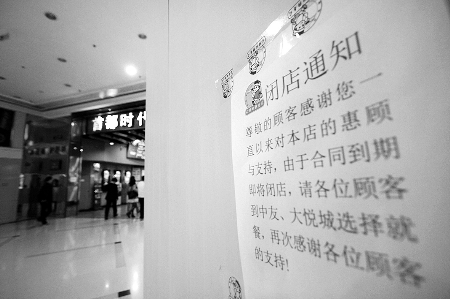 首都时代
闭店通知
尊敬的顾客感谢您一
直以来对本店的惠顾
与支持，由于合同到期
即将闭店，请各位顾客
到中友、大悦城选择就
餐，再次感谢各位顾客
的支持！